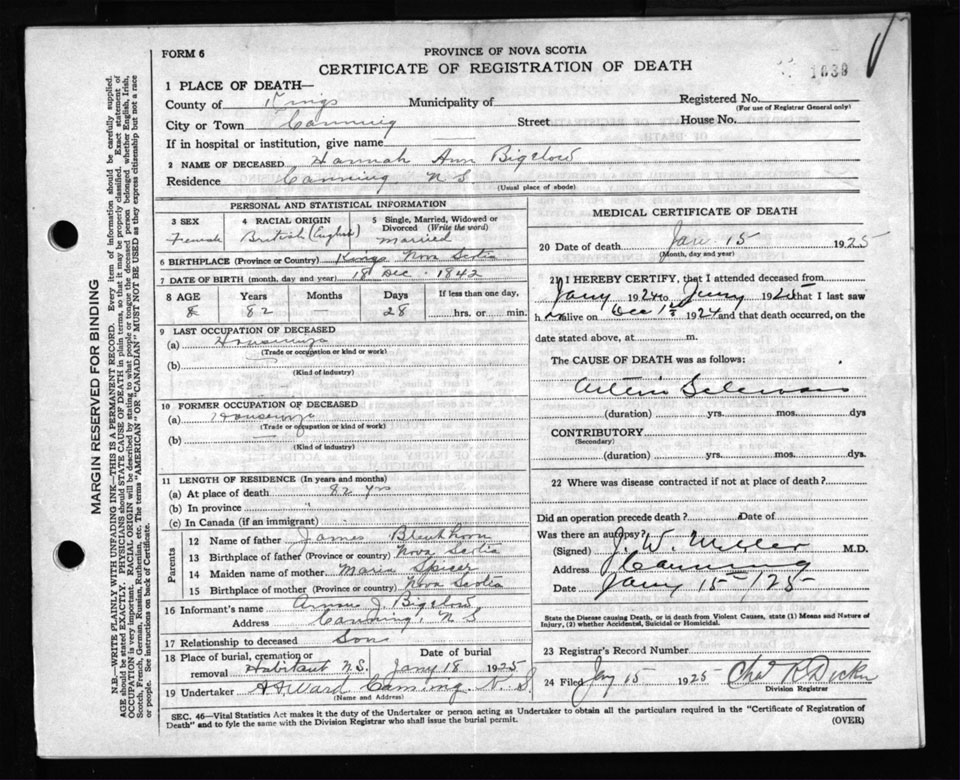 FORM 6
PROVINCE OF NOVA SCOTIA
CERTIFICATE OF REGISTRATION OF DEATH
1039
1 PLACE OF DEATH—
County of Kings Municipality of
Registered No.
(For use of Registrar General only)
City or Town Canning Street House No.
If in hospital or institution, give name
2 NAME OF DECEASED Hannah Ann Bigelow
Residence Canning N S
(Usual place of abode)
PERSONAL AND STATISTICAL INFORMATION
3 SEX
Female
4 RACIAL ORIGIN
British (English)
5 Single, Married, Widowed or Divorced (Write the word)
Married
6 BIRTHPLACE (Province or Country) Kings Nova Scotia
7 DATE OF BIRTH (month, day and year) 18 Dec. 1842
8 AGE Years Months Days If less than one day,
82 28 hrs. or min.
9 LAST OCCUPATION OF DECEASED
(a)
(Trade or occupation or kind or work)
(b)
(Kind of industry)
10 FORMER OCCUPATION OF DECEASED
(a)
(Trade or occupation or kind of work)
(b)
(Kind of industry)
11 LENGTH OF RESIDENCE (In years and months)
(a) At place of death 82 yrs
(b) In province
(c) In Canada (if an immigrant)
Parents
12 Name of father James
13 Birthplace of father (Province or country) Nova Scotia
14 Maiden name of mother Maria Spicer
15 Birthplace of mother (Province or country) Nova Scotia
16 Informant's name J. Bigelow
Address Canning, N S
17 Relationship to deceased Son
18 Place of burial, cremation or removal Habitant N.S.
Date of burial
Jany 18 1925
19 Undertaker A A Ward Canning. N. S.
(Name and Address)
MEDICAL CERTIFICATE OF DEATH
20 Date of death Jan 15 1925
(Month, day and year)
21 I HEREBY CERTIFY, that I attended deceased from
Jany 1924 to Jany 1925 that I last saw
h alive on Dec 1st 1924 and that death occurred, on the
date stated above, at m.
The CAUSE OF DEATH was as follows:
(duration) yrs. mos. dys
CONTRIBUTORY
(Secondary)
(duration) yrs. mos. dys.
22 Where was disease contracted if not at place of death?
Did an operation precede death? Date of
Was there an autopsy?
(Signed) J. W. Miller M.D.
Address Canning
Date Jany 15/25
State the Disease causing Death, or is death from Violent Causes, state (1) Means and Nature of
Injury, (2) whether Accidental, Suicidal or Homicidal.
23 Registrar's Record Number
24 Filed Jany 15 1925 Chas R
Division Registrar
SEC. 46—Vital Statistics Act makes it the duty of the Undertaker or person acting as Undertaker to obtain all the particulars required in the "Certificate of Registration of
Death" and to fyle the same with the Division Registrar who shall issue the burial permit.
(OVER)
MARGIN RESERVED FOR BINDING
N.B.—WRITE PLAINLY WITH UNFADING INK—THIS IS A PERMANENT RECORD. Every item of information should be carefully supplied.
AGE should be stated EXACTLY. PHYSICIANS should STATE CAUSE OF DEATH in plain terms, so that it may be properly classified. Exact statement of
OCCUPATION is very important. RACIAL ORIGIN will be described by stating to what people or tongue the deceased person belonged whether English, Irish,
Scotch, French, German, Russian, Ruthenian, etc. The terms "AMERICAN" OR "CANADIAN" MUST NOT BE USED as they express citizenship but not a race
or people. See instructions on back of Certificate.